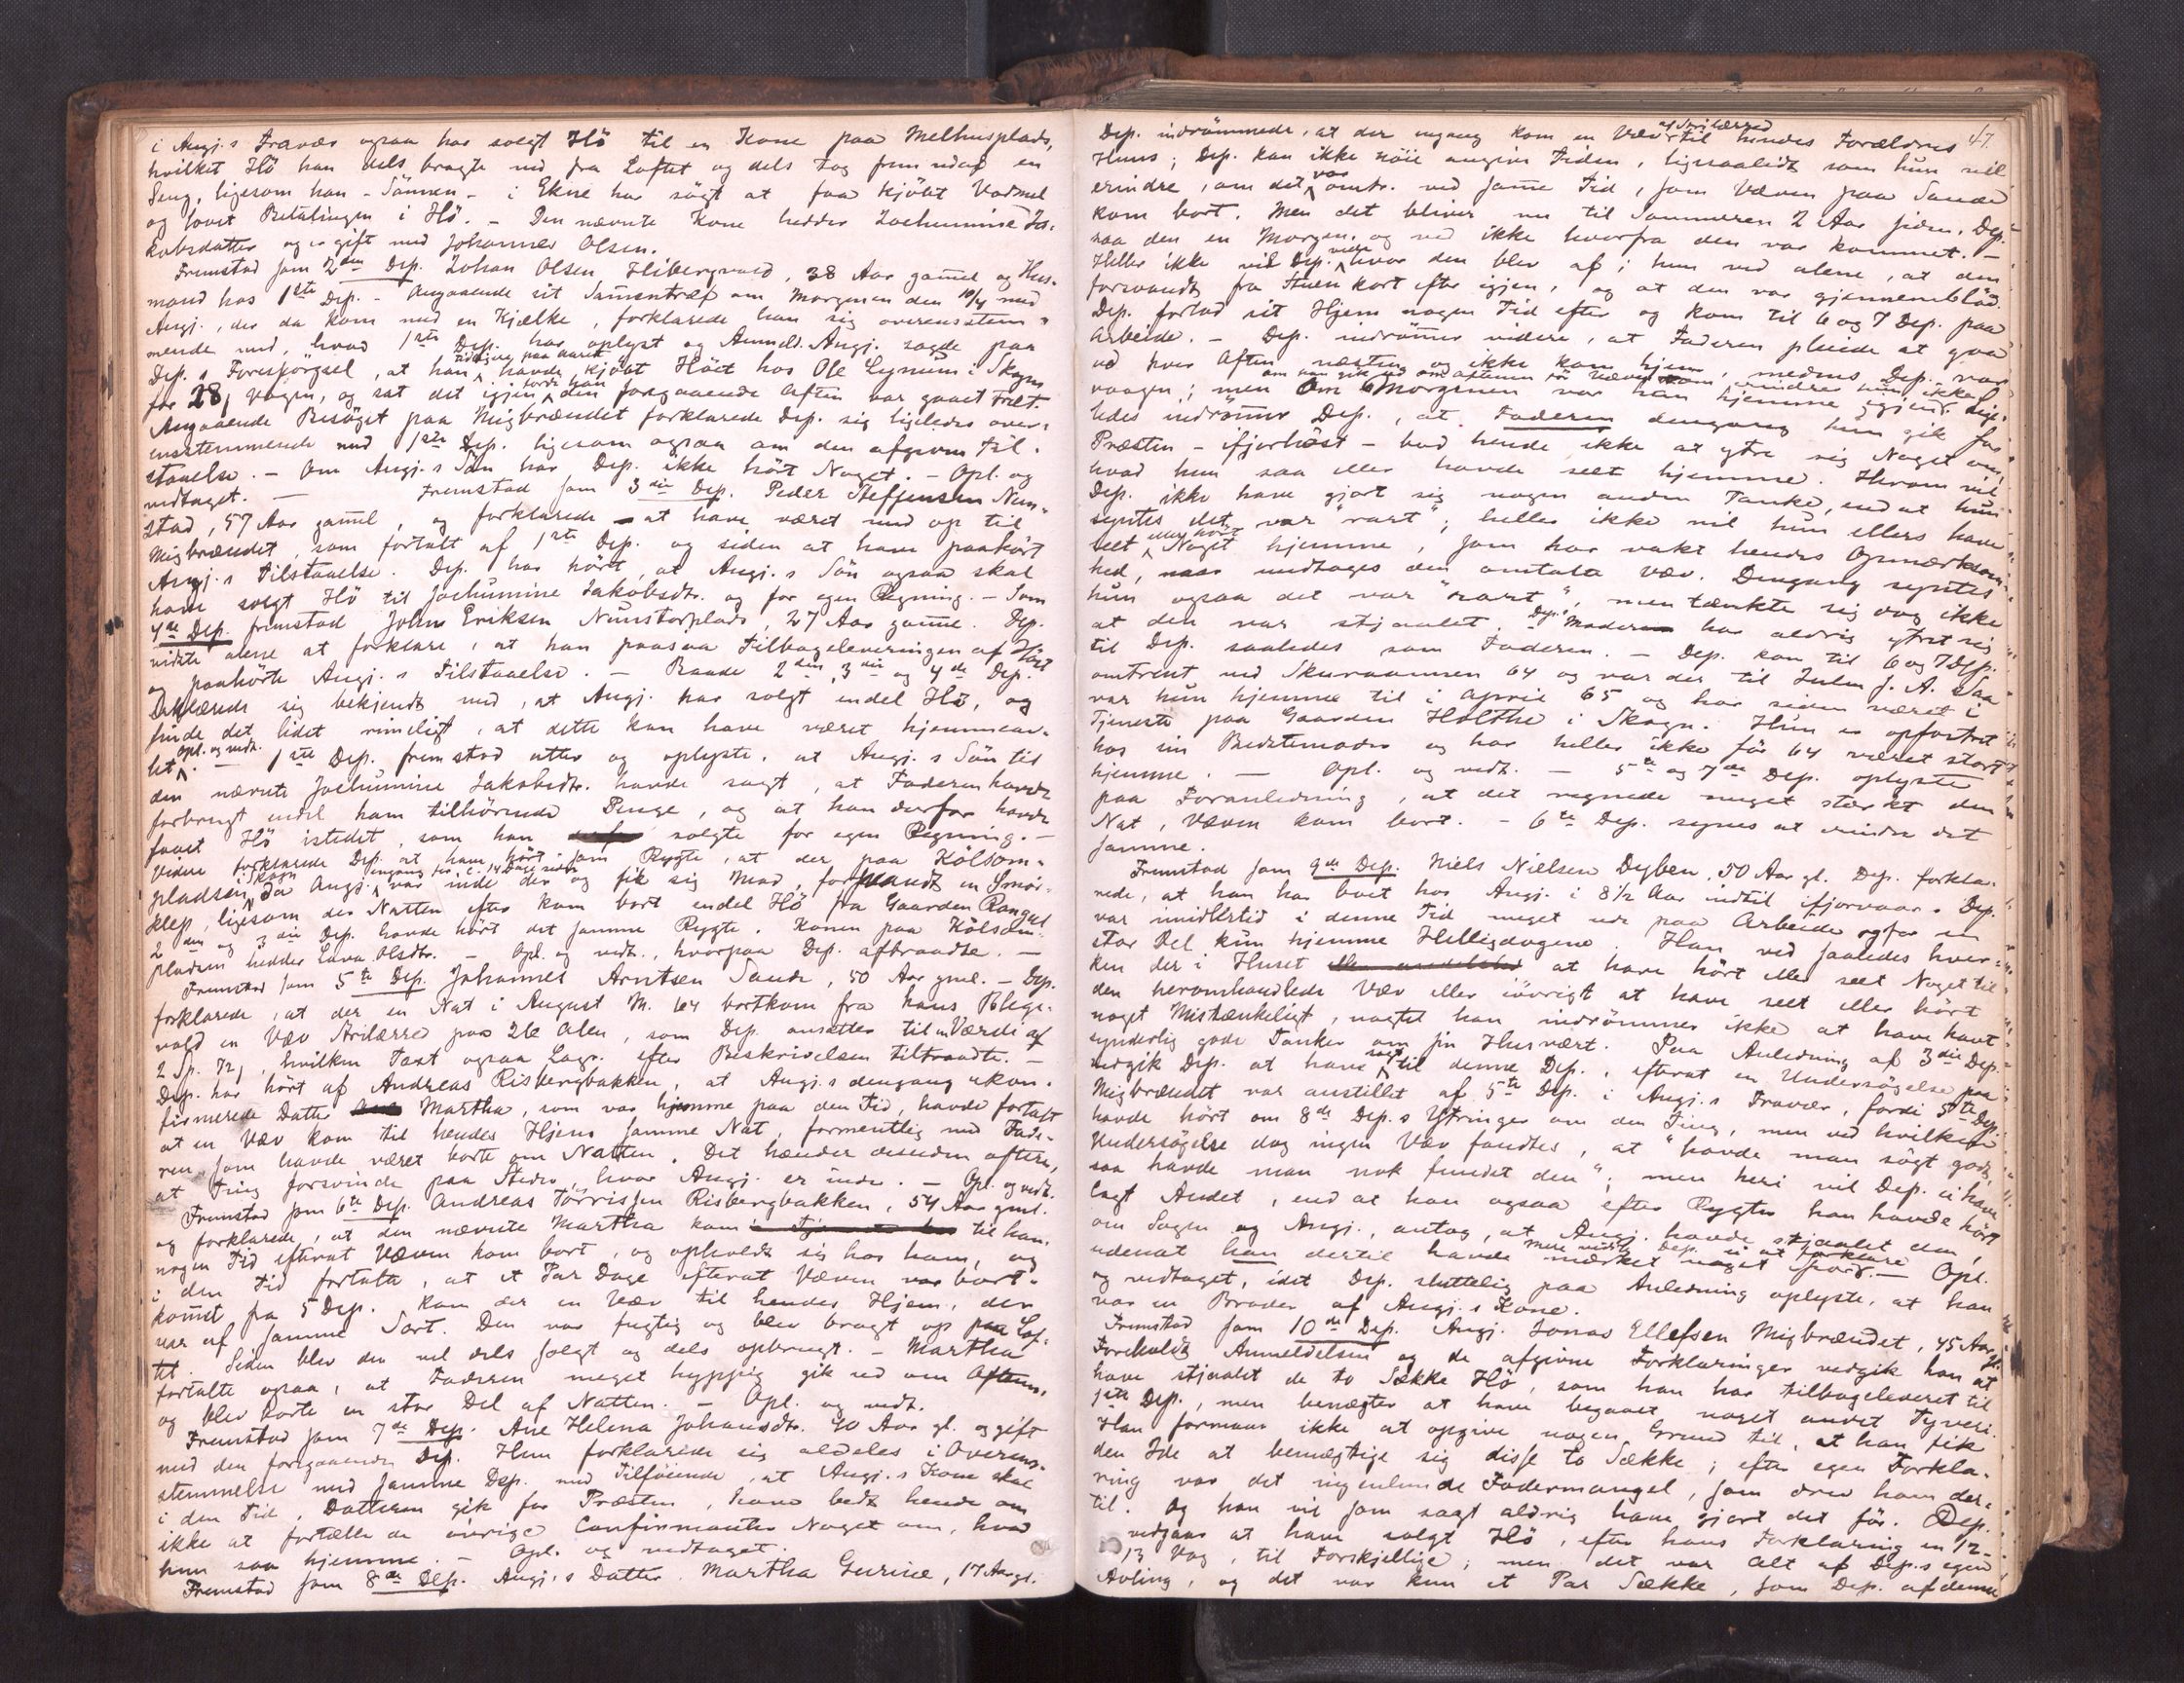 i Angj.s Fravær ogsaa har solgt Hö til en Kone paa Melhusplads,
hvilket Hö han dels bragte ned fra Loftet og dels tog frem under en
Seng, ligesom han - Sönnen - i Ekne har sögt at faa kjöbt Vadmel
og lovet Betalingen i Hö. - Den nævnte Kone hedder Jochumine Ja-
kobsdatter og er gift med Johannes Olsen.
Fremstod som 2den Dep. Johan Olsen Hibergvald, 38 Aar gamel og Hus-
mand hos 1ste Dep. - Angaaende sit Samentræf om Morgenen den 10/4 med
Angj., der da kom med en Kjælke, forklarede han sig overensstem-
mende med, hvad 1ste Dep. har oplyst og Anmeld. Angj. sagde paa
Dep.s Forespörgsel, at han tidligere paa Aaret havde kjöbt Höet hos Ole Lynum i Skogn
for 28 Vogen, og sat det igjen fordi han den foregaaende Aften var gaaet træt.
Angaaende Besöget paa Migbrændet forklarede Dep. sig ligeledes over-
ensstemmende med 1ste Dep. ligesom ogsaa om den afgivne Til-
staaelse. - Om Angj.s Sön har Dep. ikke hört Noget. - Opl. og
vedtaget. - Fremstod som 3die Dep. Peder Steffensen Nun-
stad, 57 Aar gamel, og forklarede at have været med op til
Migbrændet, som fortalt af 1ste Dep. og siden at have paahört
Angj.s Tilstaaelse. Dep. har hört, at Angj.s Sön ogsaa skal
have solgt Hö til Jochumine Jakobsdtr. og for egen Regning. - Som
4de Dep. fremstod Johns Eriksen Nunstorplads, 27 Aar gamel. Dep.
vidste alene at forklare, at han paasaa Tilbageleveringen af Höet
og paahörte Angj.s Tilstaaelse. - Baade 2den, 3die og 4de Dep.
erklærede sig bekjendt med, at Angj. har solgt endel Hö, og
finde det lidet rimeligt, at dette kan have været hjemmeav-
let opl. og vedt. - 1ste Dep. fremstod atter og oplyste, at Angj.s Sön til
den nævnte Jochumine Jakobsdtr. havde sagt, at Faderen havde
forbrugt endel ham tilhörende Penge, og at han derfor havde
faaet Hö istedet, som han solgte for egen Regning. -
Videre forklarede Dep. at have hört som Rygte, at der paa Kölsom-
pladsen i Skogn da Angj. engang for c. 14 Dage siden var inde der og fik sig Mad, forsvandt en Smör-
klep, ligesom der Natten efter kom bort endel Hö fra Gaarden Rangul
2den og 3die Dep. havde hört det samme Rygte. Konen paa Kölsom-
pladsen hedder Lava Olsdtr. - Opl. og vedt., hvorpaa Dep. aftraadte. -
Fremstod som 5te Dep. Johannes Arntsen Sande, 50 Aar gml. - Dep.
forklarede, at der en Nat i August M. 64 bortkom fra hans Blege-
vold en Væv Strilærred paa 26 Alen, som Dep. ansætter til en Værdi af
2 Sp. 72, hvilken Taxt ogsaa Lagr. efter Beskrivelsen tiltraadte. -
Dep. har hört af Andreas Risbergbakken, at Angj.s dengang ukon-
firmerede Datter Martha, som var hjemme paa den Tid, havde fortalt
at en Væv kom til hendes Hjem samme Nat, formentlig med Fade-
ren, som havde været borte om Natten. Det hænder desuden oftere,
at Ting forsvinde paa Steder, hvor Angj. er inde. - Opl. og vedt.
Fremstod som 6te Dep. Andreas Törrissen Risbergbakken, 54 Aar gml.
og forklarede, at den nævnte Martha kom til ham
nogen Tid efterat Væven kom bort, og opholdt sig hos ham, og
i den Tid fortalte, at et Par Dage efterat Væven var bort-
kommet fra 5 Dep. kom der en Væv til hendes Hjem, der
var af samme Sort. Den var fugtig og blev bragt op paa Lof-
tet. Siden blev den vel dels solgt og dels opbrugt. - Martha
fortalte ogsaa, at Faderen meget hyppig gik ud om Aftenen,
og blev borte en stor Del af Natten. - Opl. og vedt.
Fremstod som 7de Dep. Ane Helena Johansdtr. 40 Aar gl. og gift
med den foregaaende Dep. Hun forklarede sig aldeles i Overens-
stemmelse med samme Dep. med Tilföiende, at Angj.s Kone skal
i den Tid, Datteren gik for Præsten, have bedt hende om
ikke at fortælle de övrige Confirmanter Noget om, hvad
hun saa hjemme. - Opl. og vedtaget.
Fremstod som 8de Dep. Angj.s Datter Martha Gurine, 17 Aar gl.
47.
Dep. indrömmede, at der engang kom en Væv af Strilærred til hendes Forældres
Huus; Dep. kan ikke nöie angive Tiden, ligesaalidt som hun vil
erindre, om det var omtr. ved same Tid, som Væven paa Sande
kom bort. Men det bliver nu til Sommeren 2 Aar siden. Dep.
saa den en Morgen, og ved ikke hvorfra den var kommet. -
Heller ikke vil Dep. vide hvor den blev af; hun ved alene, at den
forsvandt fra Stuen kort efter igjen, og at den var gjennemblöd.
Dep. forlod sit Hjem nogen Tid efter og kom til 6 og 7 Dep. paa
Arbeide. - Dep. indrömmer videre, at Faderen pleiede at gaa
ud hver Aften næsten og ikke kom hjem, medens Dep. var
vaagen; om han gik ud om Aftenen för Væven kom, erindrer hun ikke,
men om Morgenen var han hjemme igjen. Lige-
ledes indrömmer Dep., at Faderen dengang hun gik for
Præsten - ifjorhöst - bad hende ikke at ytre sig Noget om,
hvad hun saa eller havde seet hjemme. Herom vil
Dep. ikke have gjort sig nogen anden Tanke, end at hun
syntes det var "rart"; heller ikke vil hun ellers have
seet eller hört Noget hjemme, som har vakt hendes Opmærksom-
hed, naar undtages den omtalte Væv. Dengang syntes
hun ogsaa det var "rart", men tænkte sig dog ikke
at den var stjaalet. Dep.s Moder har aldrig ytret sig
til Dep. saaledes som Faderen. - Dep. kom til 6 og 7 Dep.
omtrent ved Skuraannen 64 og var der til Julen s. A. Saa
var hun hjemme til i April 65 og har siden været i
Tjeneste paa Gaarden Holthe i Skogn. Hun er opfostret
hos sin Bedstemoder og har heller ikke för 64 været stort
hjemme. - Opl. og vedt. - 5te og 7de Dep. oplyste
paa Foranledning, at det regnede meget stærkt den
Nat, Væven kom bort. - 6te Dep. synes at erindre det
samme.
Fremstod som 9de Dep. Niels Nielsen Dyben, 50 Aar gl. Dep. forkla-
rede, at han har boet hos Angj. i 8 1/2 Aar indtil ifjorvaar. Dep.
var imidlertid i denne Tid meget ude paa Arbeide og for en
stor Del kun hjemme Helligdagene. Han ved saaledes hver-
ken der i Huset at have hört eller seet Noget til
den heromhandlede Væv eller iövrigt at have seet eller hört
noget Mistænkeligt, uagtet han indrömmer ikke at have havt
synderlig gode Tanker om sin Husvært. Paa Anledning af 3die Dep.
vedgik Dep. at have sagt til denne Dep., efterat en Undersögelse paa
Migbrændet var anstillet af 5te Dep. i Angj.s Fravær, fordi 5te Dep.
havde hört om 8de Dep.s Ytringer om den Ting, men ved hvilken
Undersögelse dog ingen Væv fandtes, at "havde man sögt godt,
saa havde man nok fundet den"; men heri vil Dep. ei have
lagt Andet, end at han ogsaa efter Rygter han havde hört
om Sagen og Angj., antog, at Angj. havde stjaalet den,
udenat han dertil havde mærket noget Spor. - mere vidste Dep. ei at forklare Opl.
og vedtaget, idet Dep. sluttelig paa Anledning oplyste, at han
var en Broder af Angj.s Kone.
Fremstod som 10de Dep. Angj. Jonas Ellefsen Migbrændet, 45 Aar gl.
Foreholdt Anmeldelsen og de afgivne Forklaringer vedgik han at
have stjaalet de to Sække Hö, som han har tilbageleveret til
1ste Dep., men benægter at have begaaet noget andet Tyveri.
Han formaar ikke at opgive nogen Grund til, at han fik
den Ide at bemægtige sig disse to Sække; efter egen Forkla-
ring var det ingenlunde Fodermangel, som drev ham der-
til. Og han vil som sagt aldrig have gjort det för. Dep.
vedgaar at have solgt Hö, efter hans Forklaring en 12-
13 Vog, til Forskjellige; men det var Alt af Dep.s egen
Avling, og det var kun et Par Sække, som Dep. af denne